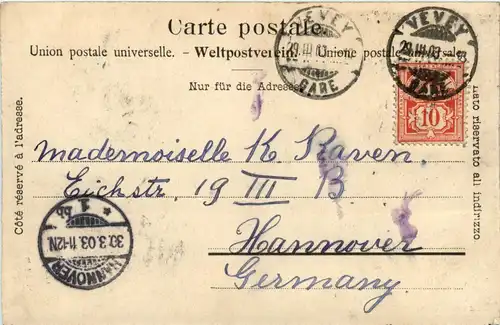 Carte postale.
Union postale universelle. – Weltpostverein. – Unione postale universale.
Nur für die Adresse.
VEVEY
29.III.03
GARE
VEVEY
29.III.03
GARE
10
Côté réservé à l'adresse.
Lato riservato all indirizzo
Mademoiselle K Raven.
Eichstr. 19 III B
Hannover
Germany
* 1 bb
30.3.03.11-12N
HANNOVER